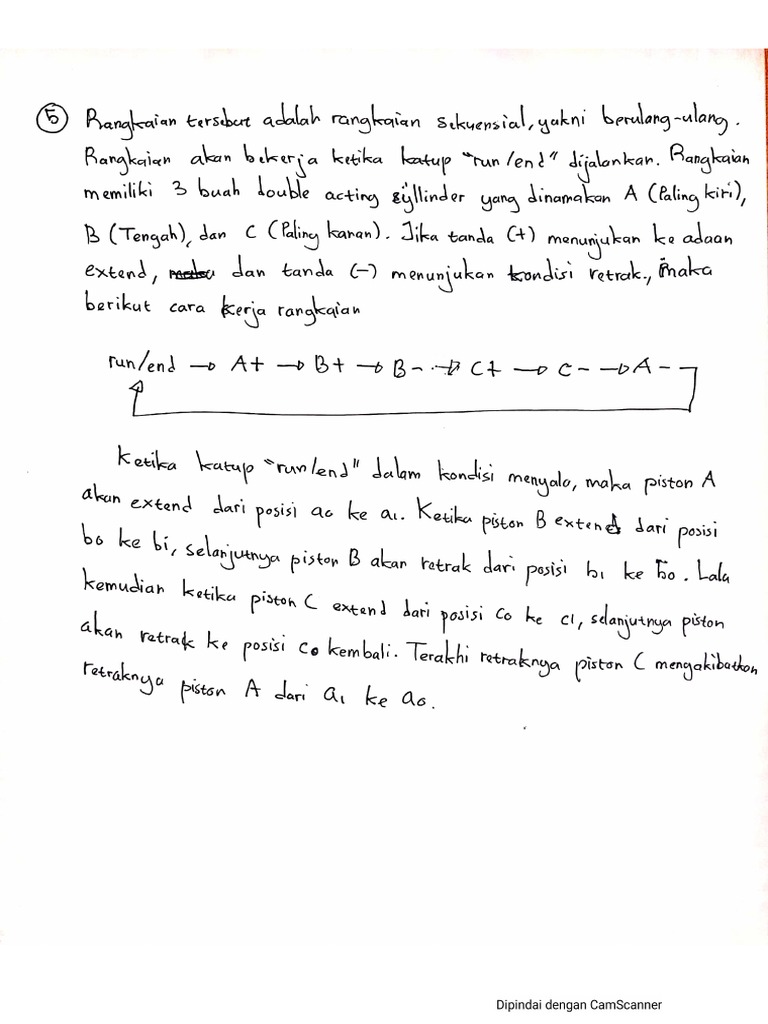 5 Rangkaian tersebut adalah rangkaian sekuensial, yakni berulang-ulang.
Rangkaian akan bekerja ketika katup "run/end" dijalankan. Rangkaian
memiliki 3 buah double acting syllinder yang dinamakan A (Paling kiri),
B (Tengah), dan C (Paling kanan). Jika tanda (+) menunjukan ke adaan
extend, dan tanda (-) menunjukan kondisi retrak., maka
berikut cara kerja rangkaian
run/end → A+ → B+ → B- → C+ → C- → A-
Ketika katup "run/end" dalam kondisi menyala, maka piston A
akan extend dari posisi a0 ke a1. Ketika piston B extend dari posisi
b0 ke b1, selanjutnya piston B akan retrak dari posisi b1 ke b0. Lalu
kemudian ketika piston C extend dari posisi c0 ke c1, selanjutnya piston
akan retrak ke posisi c0 kembali. Terakhi retraknya piston C mengakibatkan
retraknya piston A dari a1 ke a0.
Dipindai dengan CamScanner